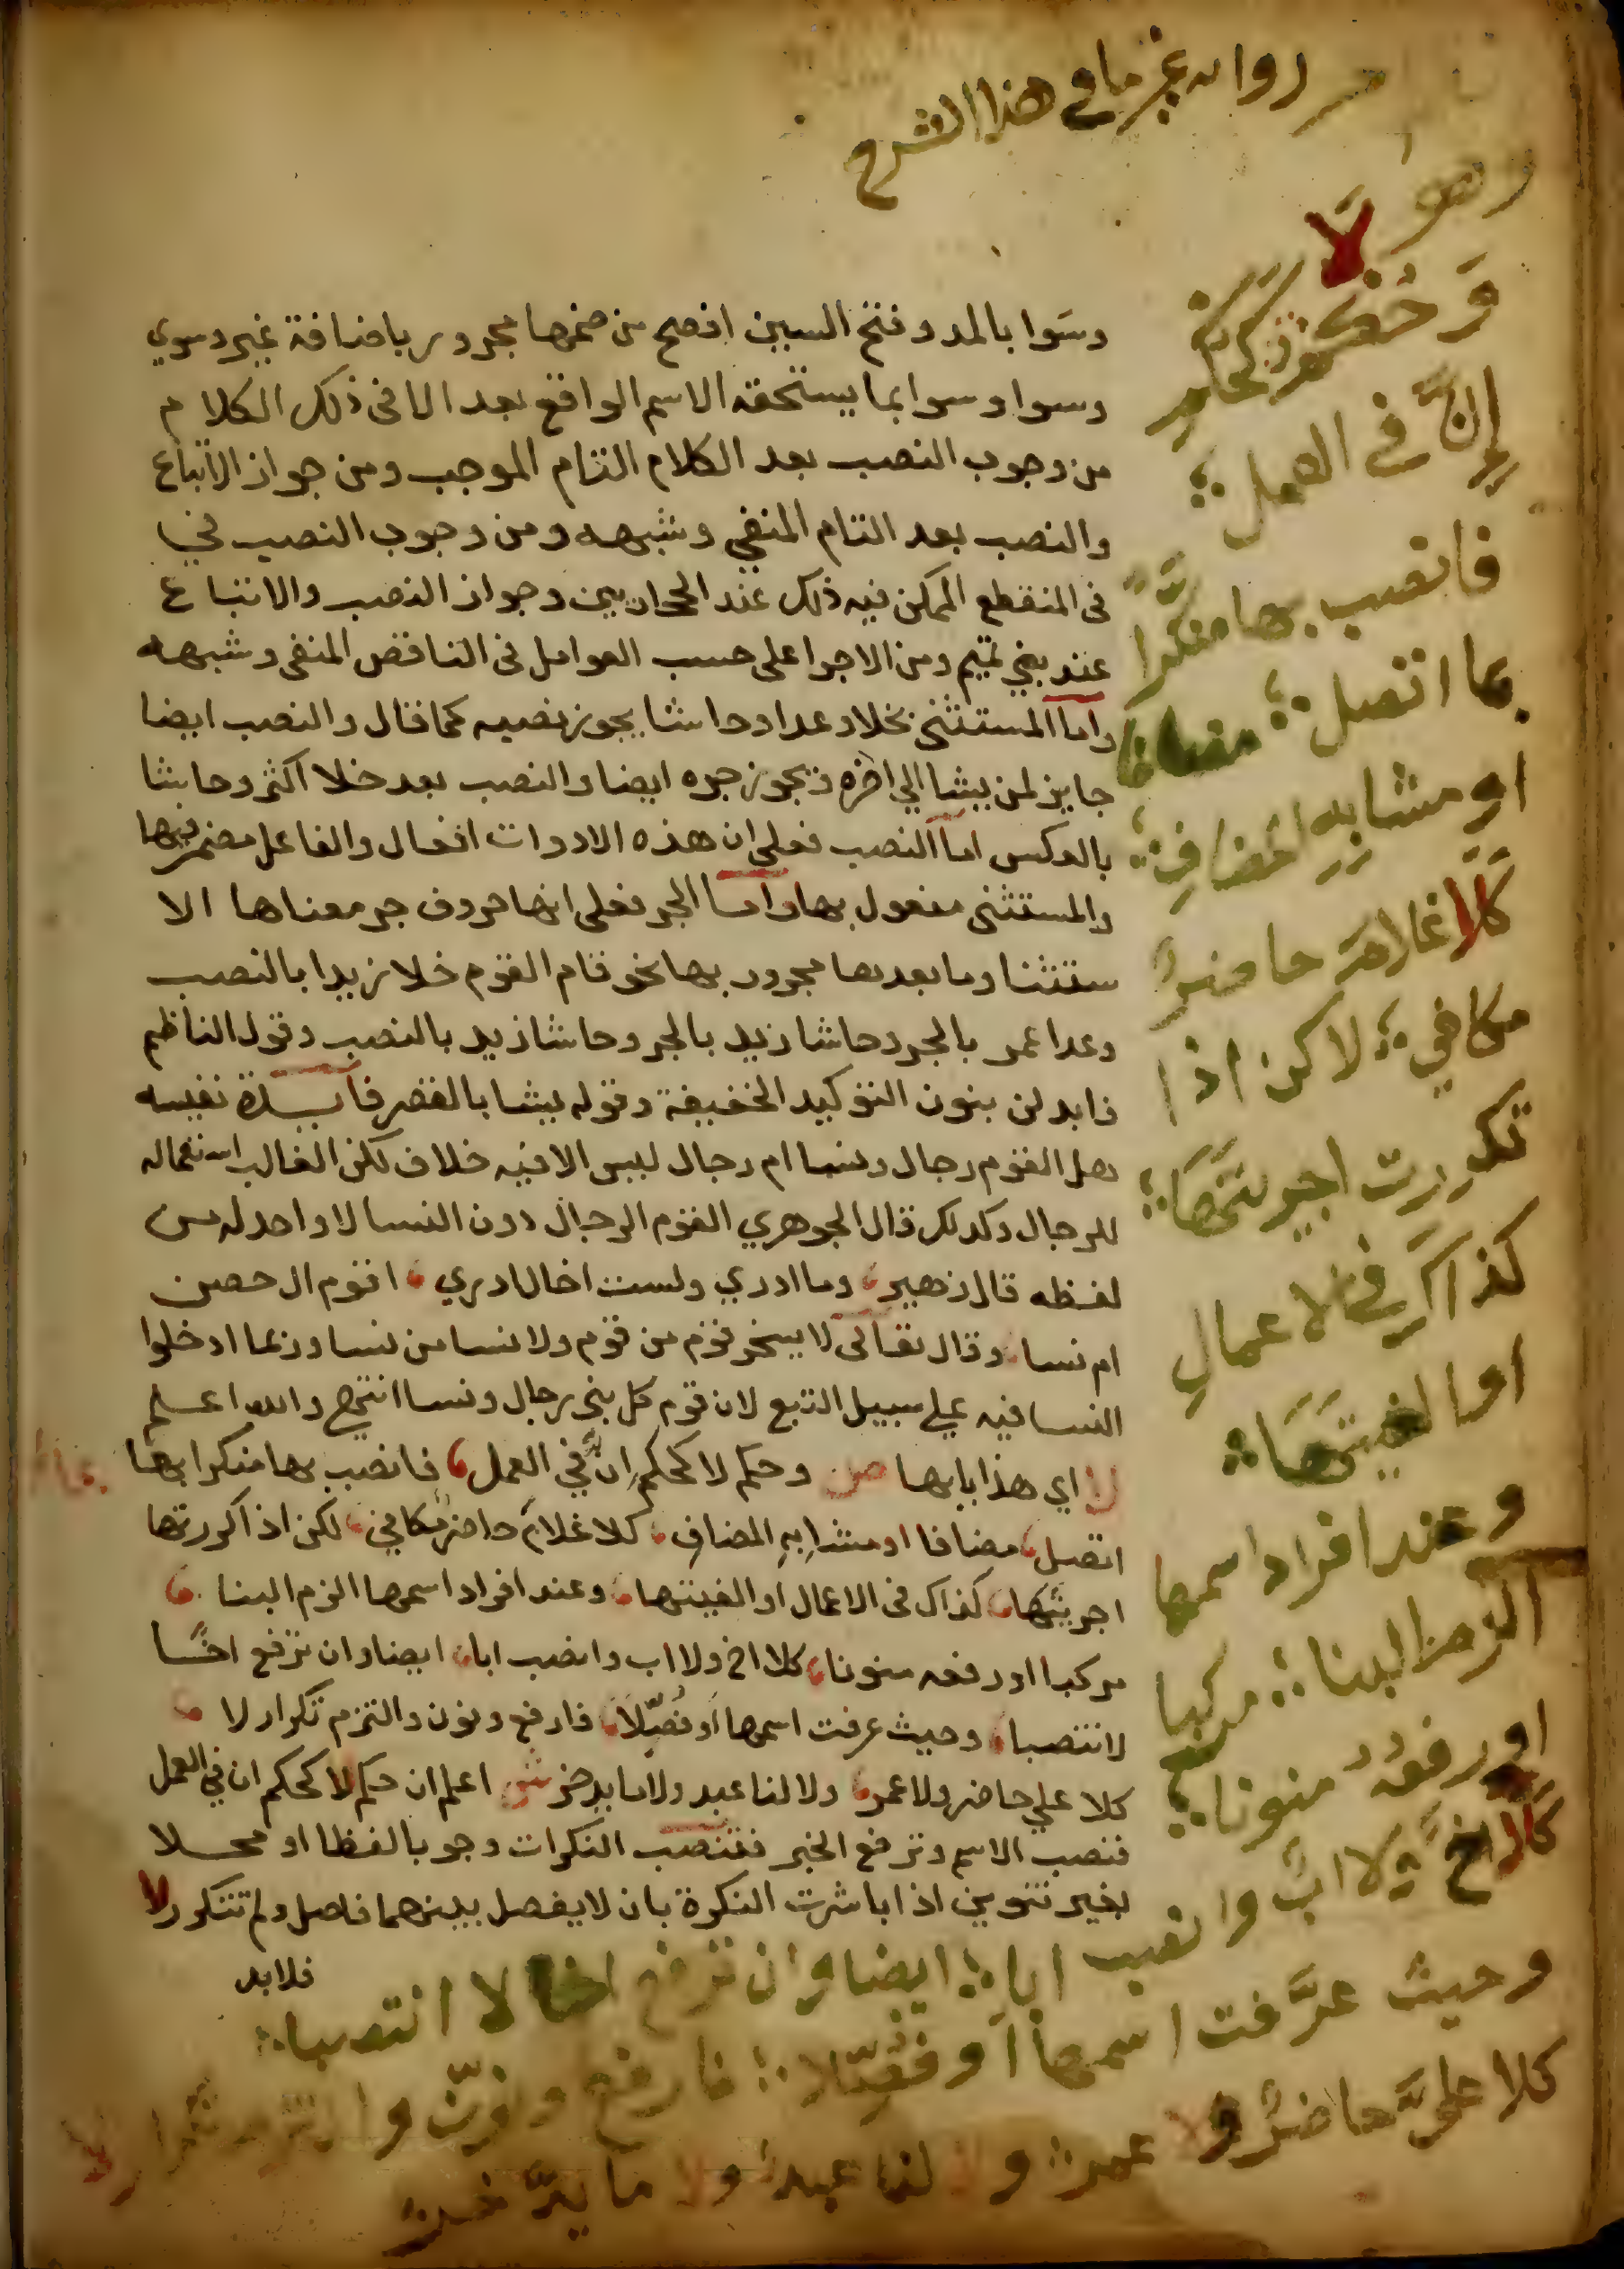 رواىه غير ما فى هذا الشرح
وهو
لا
وسَوا بالمد وفتح السين افصح من ضمها مجرور باضافة غير وسوي
وسوا وسوا بما يستحقه الاسم الواقع بعد الا فى ذلك الكلام
من وجوب النصب بعد الكلام التام الموجب ومن جواز الاتباع
والنصب بعد التام المنفي وشبهه ومن وجوب النصب في
فى المنقطع الممكن فيه ذلك عند الحجازيين وجواز النصب والاتباع
عند بني تميم ومن الاجرا على حسب العوامل فى الناقص المنفى وشبهه
واما المستثنى بخلا وعدا وحاشا يجوز نصبه كما قال والنصب ايضا
جايز لمن يشا الي اخره ويجوز جره ايضا والنصب بعد خلا اكثر وحاشا
بالعكس اما النصب فعلى ان هذه الادوات افعال والفاعل مضمر فيها
والمستثنى مفعول بها واما الجر فعلى انها حروف جر معناها الا
ستثنا وما بعدها مجرور بها نحو قام القوم خلا زيدا بالنصب
وعدا عمر بالجر وحاشا زيد بالجر وحاشا زيد بالنصب وقول الناظم
فابدلن بنون التوكيد الخفيفة وقوله يشا بالقصر فايدة نفيسه
هل القوم رجال ونسا ام رجال ليس الا فيه خلاف لكن الغالب استعماله
للرجال وكذلك قال الجوهري القوم الرجال دون النسا لا واحد له من
لفظه قال زهير، وما ادري ولست اخال ادري، اقوم ال حصن
ام نسا، وقال تعالى لا يسخر قوم من قوم ولا نسا من نسا وربما ادخلوا
النسا فيه علي سبيل التبع لان قوم كل بني رجال ونسا انتهى والله اعلم
لا اي هذا بابها ص وحكم لا كحكم اِنَّ في العمل، فانصب بها منكرا بها
اتصل، مضافا او مشابِهِ المضافِ، كلا غلامَ حاضرٌ مكافي، لكن اذا كررتها
اجريتَها، كذاك فى الاعمال او الغيتها، وعند افراد اسمها الزم البنا،
مركبا او رفعه منونا، كلا اخ ولا اب وانصب ابا، ايضا وان ترفع اخًا
لا تنصبا، وحيث عرفت اسمها اَو فُصِّلَا، فارفع ونون والتزم تكرار لا،
كلا علي حاضر ولا عمر، ولا لنا عبد ولا ما يدخر ش اعلم ان حكم لا كحكم ان في العمل
فتنصب الاسم وترفع الخبر فتنصب النكرات وجوبا لفظا او محلا
بغير تنوين اذا باشرت النكرة بان لا يفصل بينهما فاصل ولم تتكرر لا
فلا بد
وَحُكْمُ كَحُكْمِ
إِنَّ فى العمل؛
فانصب بها منكَّرا
بما اتصل؛ مضافا
او مشابهِ المضافِ؛
كَلَا غلامَ حاضرٌ
مكافي؛ لاكن اذا
تكررت اجريتَهَا؛
كَذَاكَ في الاعمالِ
او الغيتَهَا؛
وعند افراد اسمها
الزم البنا؛ مركبا
او رفعهُ منونا؛
كَلَا اخٌ وَلا ابٌ وانصب ابا؛ ايضا وان ترفع اخا لا انتصبا؛
وحيث عرَّفت اسمها اَو فُصِّلَا؛ فارفع ونوِّن والتزم تكرار لا
كلا عليٌّ حاضرٌ ولا عمر؛ ولا لنا عبد ولا ما يدَّخر